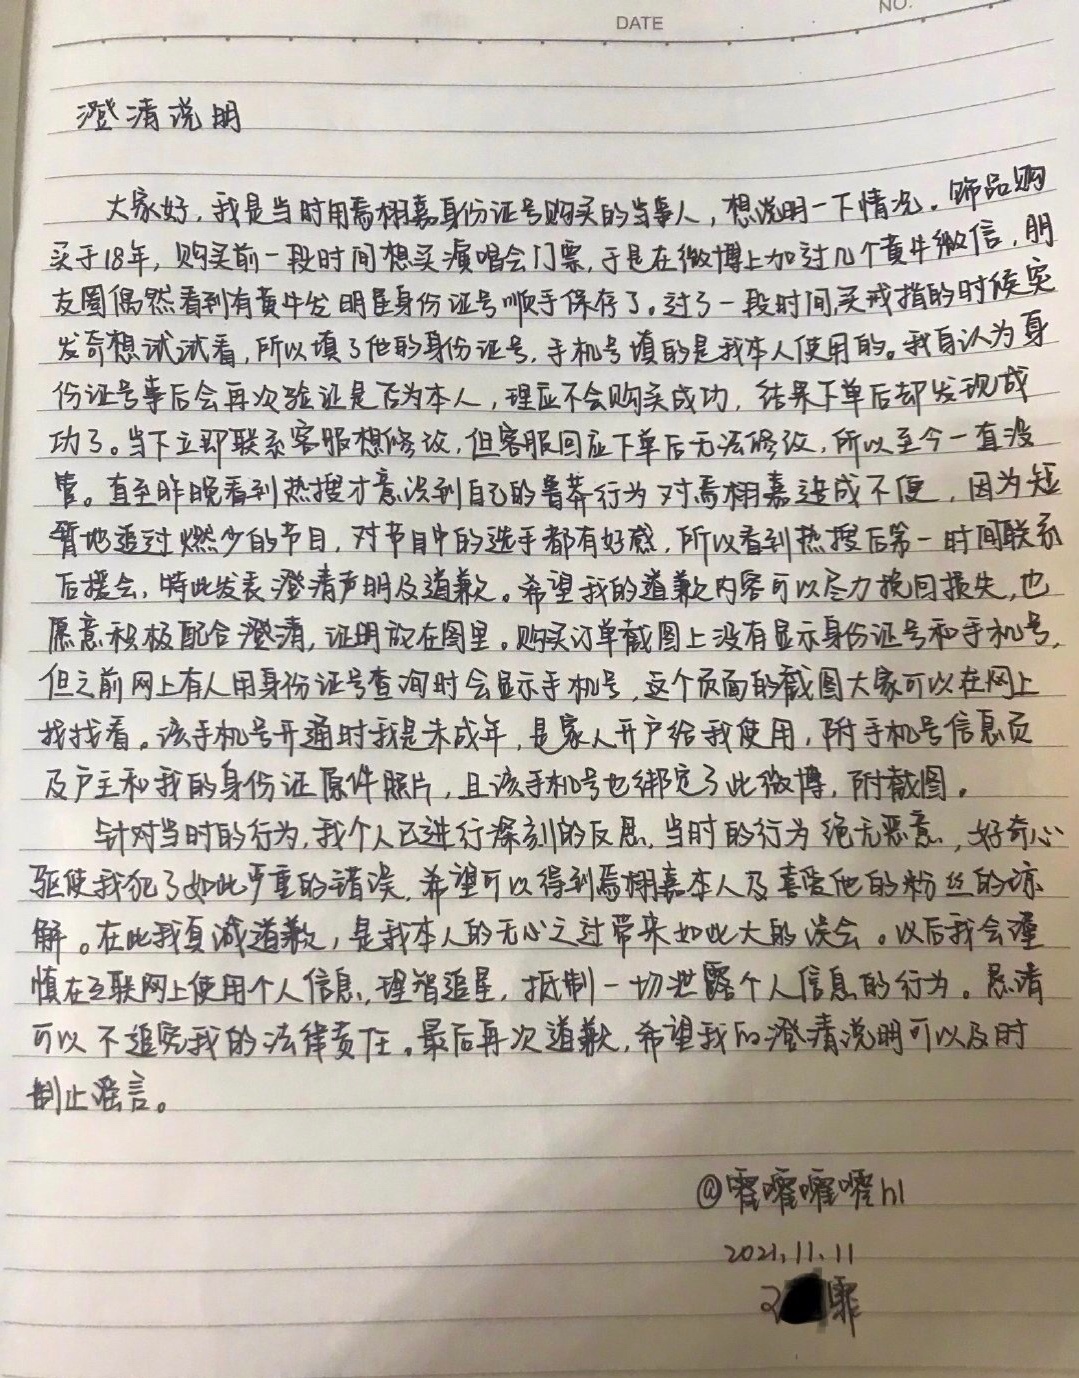 DATE
NO.
澄清说明
大家好，我是当时用焉栩嘉身份证号购买的当事人，想说明一下情况。饰品购
买于18年，购买前一段时间想买演唱会门票，于是在微博上加过几个黄牛微信，朋
友圈偶然看到有黄牛发明星身份证号顺手保存了。过了一段时间，买戒指的时候突
发奇想试试看，所以填了他的身份证号，手机号填的是我本人使用的。我自认为身
份证号事后会再次验证是否为本人，理应不会购买成功，结果下单后却发现成
功了。当下立即联系客服想修改，但客服回应下单后无法修改，所以至今一直没
管。直至昨晚看到热搜才意识到自己的鲁莽行为对焉栩嘉造成不便，因为短
暂地追过燃少的节目，对节目中的选手都有好感，所以看到热搜后第一时间联系
后援会，特此发表澄清声明及道歉。希望我的道歉内容可以尽力挽回损失，也
愿意积极配合澄清，证明放在图里。购买订单截图上没有显示身份证号和手机号，
但之前网上有人用身份证号查询时会显示手机号，这个页面的截图大家可以在网上
找找看。该手机号开通时我是未成年，是家人开户给我使用，附手机号信息页
及户主和我的身份证原件照片，且该手机号也绑定了此微博，附截图。
针对当时的行为，我个人已进行深刻的反思，当时的行为绝无恶意，好奇心
驱使我犯了如此严重的错误，希望可以得到焉栩嘉本人及喜爱他的粉丝的谅
解。在此我真诚道歉，是我本人的无心之过带来如此大的误会。以后我会谨
慎在互联网上使用个人信息，理智追星，抵制一切泄露个人信息的行为。恳请
可以不追究我的法律责任。最后再次道歉，希望我的澄清说明可以及时
制止谣言。
2021.11.11